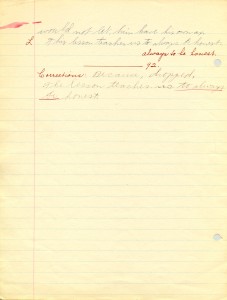 would not let him have his own
L This lesson teaches us to always to honest.
always to be honest.
92
Corrections Because, dropped,
This lesson teaches us to always
be honest